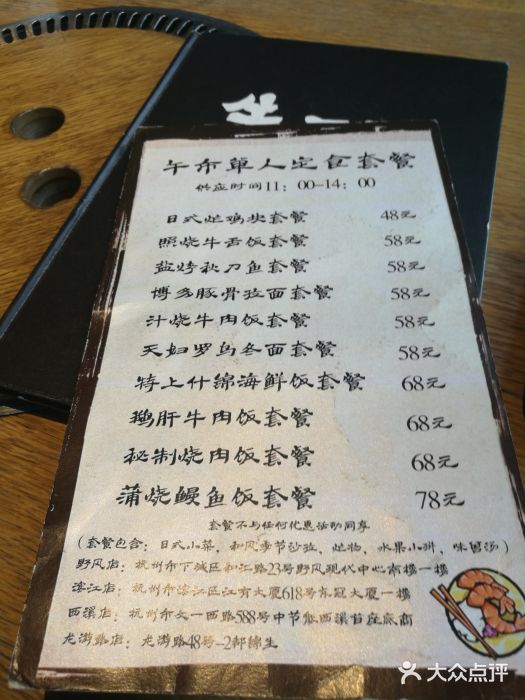 午市單人定食套餐
供应时间11：00-14：00
日式炸鸡块套餐 48元
照烧牛舌饭套餐 58元
盐烤秋刀鱼套餐 58元
博多豚骨拉面套餐 58元
汁烧牛肉饭套餐 58元
天妇罗乌冬面套餐 58元
特上什锦海鲜饭套餐 68元
鹅肝牛肉饭套餐 68元
秘制烧肉饭套餐 68元
蒲烧鳗鱼饭套餐 78元
套餐不与任何优惠活动同享
(套餐包含：日式小菜，和风季节沙拉，炸物，水果小拼，味噌汤)
野风店：杭州市下城区和汇路23号野风现代中心南楼一楼
滨江店：杭州市滨江区江南大厦618号东冠大厦一楼
西溪店：杭州市文一西路588号中节能西溪首座底商
龙游路店：龙游路48号-2邻锦生
大众点评